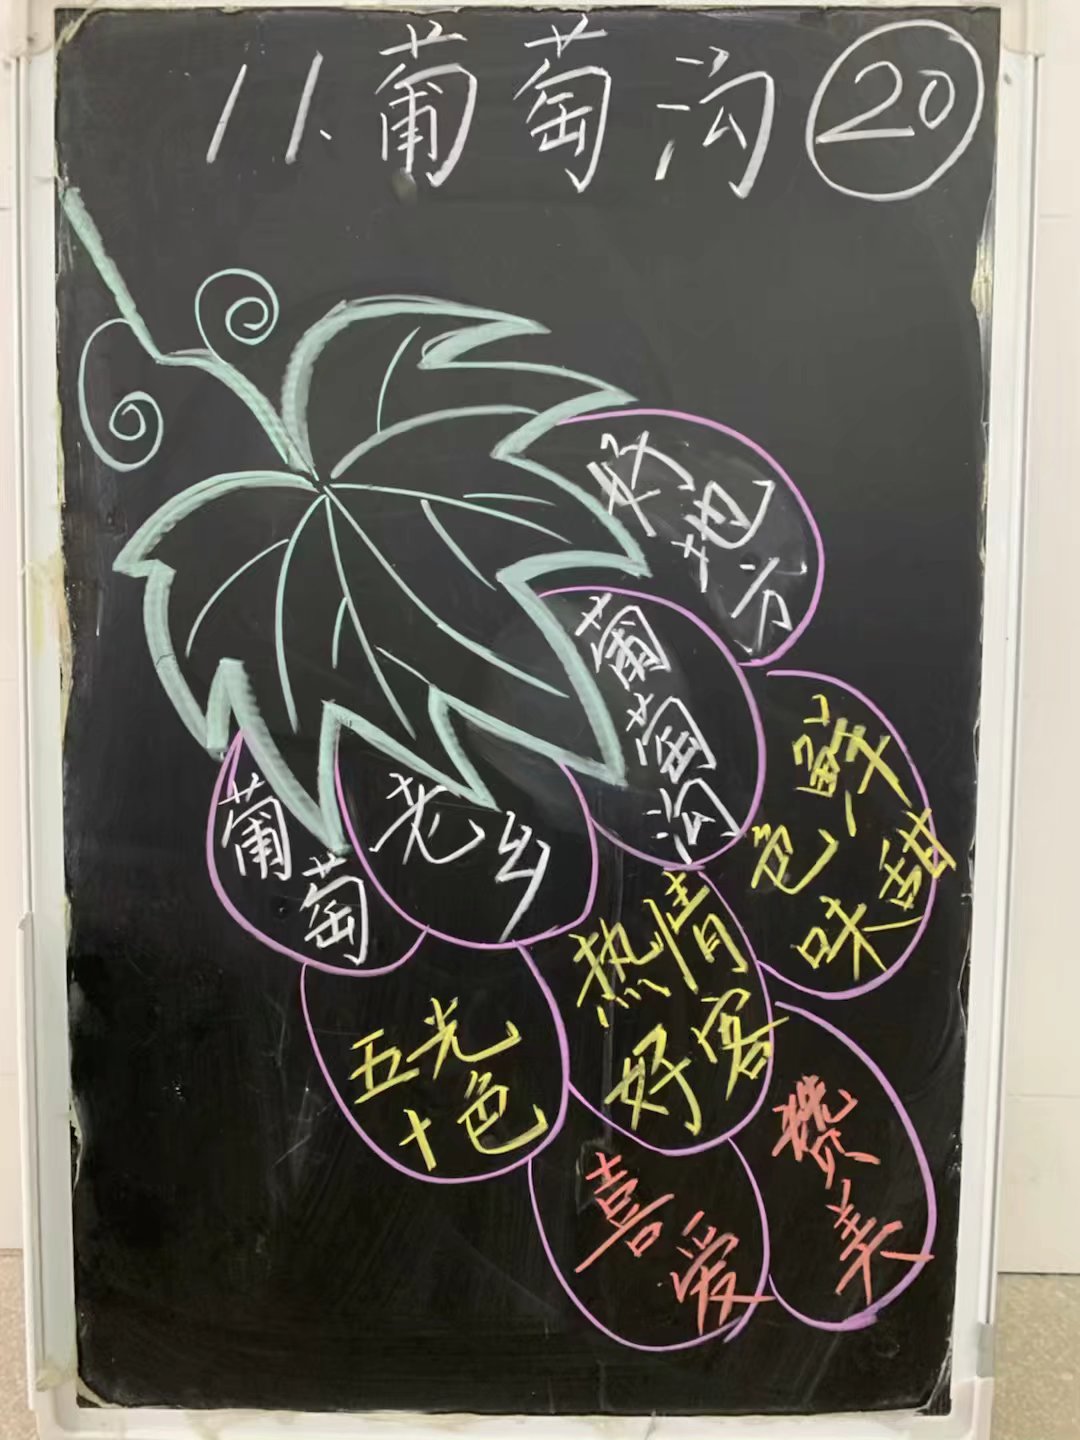 11.葡萄沟 20
好地方
葡萄沟
鲜
色 甜
味
葡萄
老乡
热情
好客
五光
十色
赞美
喜爱